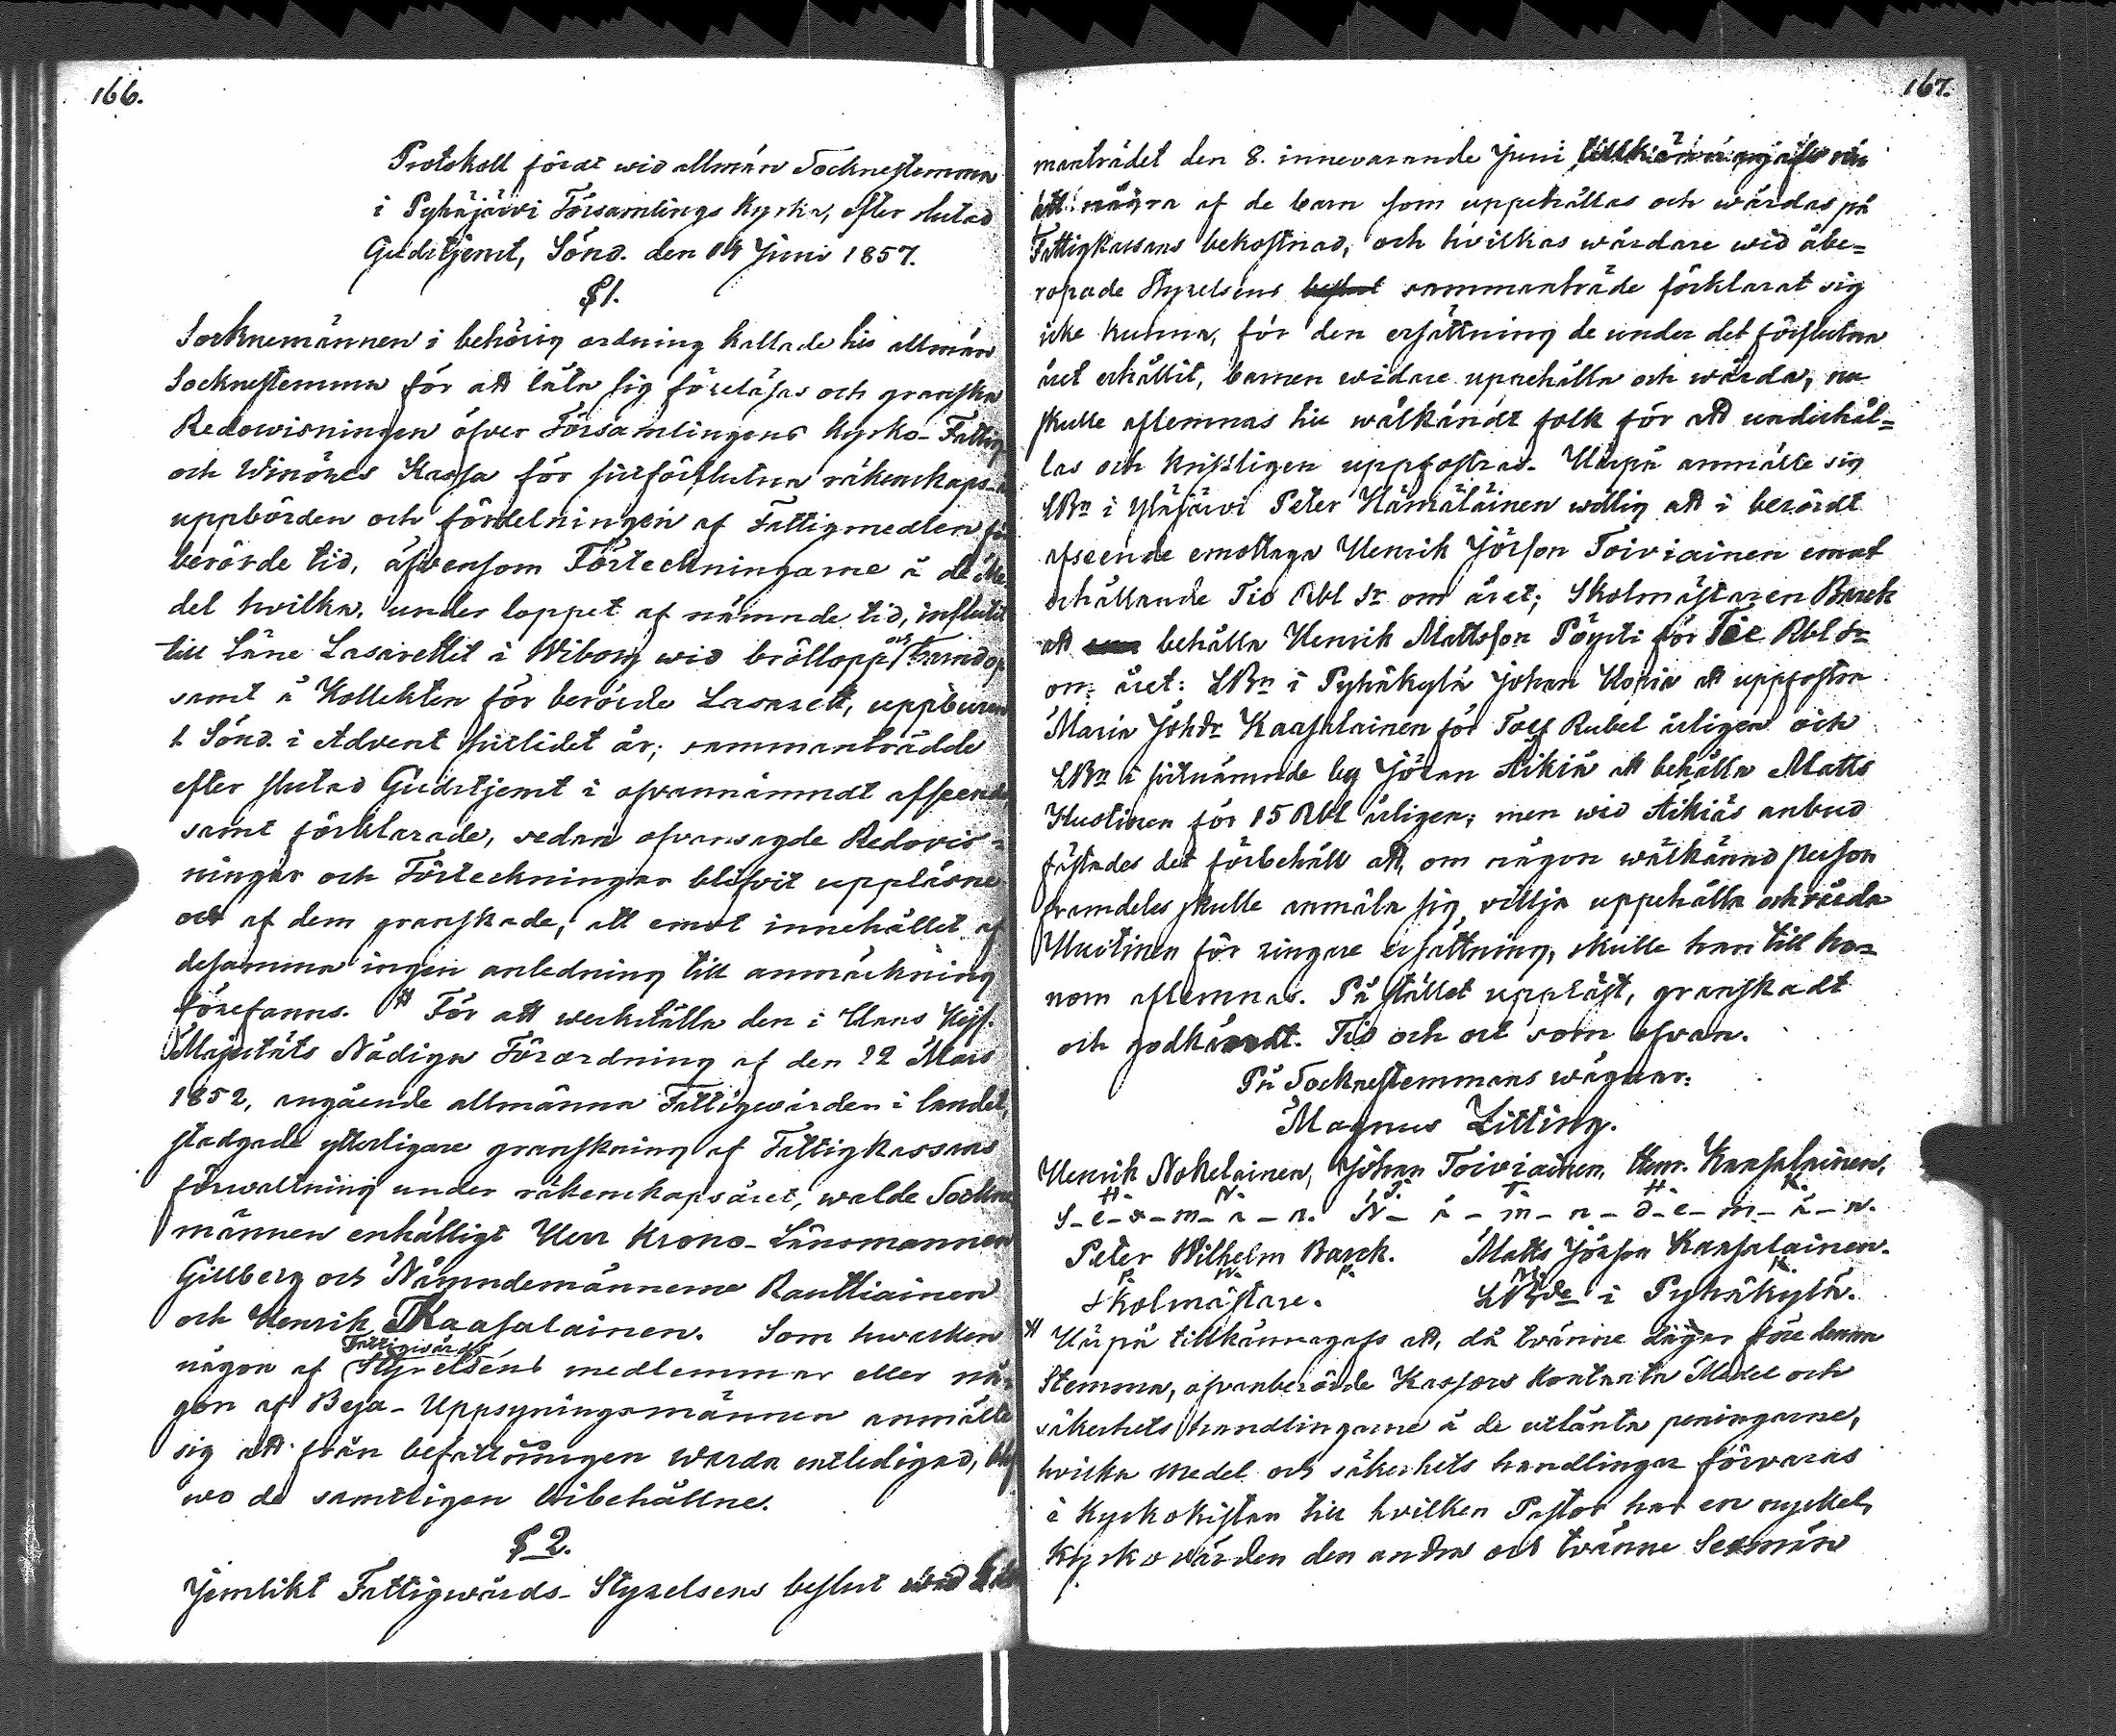 166.
Protokoll fördt wid allmän Socknestemma
i Pyhäjärvi Församlings Kyrka, efter slutad
Gudstjenst, Sönd. den 14 Juni 1857.
§ 1.
Socknemännen i behörig ordning kallade till allmän
Socknestemma för att låta sig föreläsas och granska
Redowisningen öfver Församlingens Kyrko- Fattig
och Winöres Kassa för sistförflutna räkenskaps-
uppbörden och fördelningen af Fattigmedlen
berörde tid, äfvensom Förteckningarne å de Me-
del hvilka, under loppet af nämnde tid, influtit
till Läne Lasarettet i Wiborg wid bröllopp och Barndop
samt å Kollekten för berörde Lasarett, uppburen
1 Sönd. i Advent sistlidet år; sammanträdde
efter slutad Gudstjenst i ofvannämndt afseende
samt förklarade, sedan ofvansagde Redovis-
ningar och Förteckningar blifvit uppläsne
och af dem granskade, att emot innehållet af
desamma ingen anledning till anmärkning
förefanns. # För att werkställa den i Hans Kejs.
Majestäts Nådiga Förordning af den 22 Mars
1852, angående allmänna Fattigvården i landet,
stadgade ytterligare granskning af Fattigkassans
förvaltning under räkenskapsåret, walde Sockne
männen enhälligt Herr Krono-Länsmannen
Gillberg och Nämndemännerne Rauttiainen
och Henrik Kaasalainen. Som hwarken
någon af Fattigwårds Styrelsens medlemmar eller nå-
gon af Beja-Uppsyningsmännen anmälte
sig att från befattningen warda entledigad, ble
wo de samtligen bibehållne.
§ 2.
Jemlikt Fattigwårds-Styrelsens beslut wid
167.
manträdet den 8. innevarande Juni tillkännagafs nu
att några af de barn som uppehållas och wårdas på
Fattigkassans bekostnad, och hvilkas wårdare wid åbe-
ropade Styrelsens beslut sammanträde förklarat sig
icke kunna, för den ersättning de under det förflutna
året erhållit, barnen widare uppehålla och wårda, nu
skulle aflemnas till wälkändt folk för att underhål-
las och kristligen uppfostras. Härpå anmälte sig
LBn i Yläjärvi Peter Hämäläinen willig att i berördt
afseende emottaga Henrik Jörsson Toiviainen emot
erhållande Tio Rbl Sr om året; Skolmästaren Barck
att behålla Henrik Mattsson Pöysti för Tie Rbl Sr
om året: LBn i Pyhäkylä Johan Kopia att uppfostra
Maria Johdr Kaasalainen för Tolf Rubel årligen och
LBn i sistnämnde by Jöran Äikiä att behålla Matts
Hustinen för 15 Rbl årligen; men wid Äikiäs anbud
fästades det förbehåll att, om någon wälkänd person
framdeles skulle anmäla sig villja uppehålla och vårda
Hustinen för ringare ersättning, skulle han till ho-
nom aflemnas. På stället uppläst, granskadt
och godkändt. Tid och ort som ofvan.
På Sockenstemmans wägnar:
Magnus Litting.
Henrik Nokelainen, Johan Toiviainen, Henr. Kaasalainen,
H. N. J. T. H. K.
S-e-x-m-a-n. N-ä-m-n-d-e-m-ä-n.
Peter Wilhelm Barck. Matts Jörsson Kaasalainen.
P. W. B. M. K.
Skolmästare. LBde i Pyhäkylä.
# Härpå tillkännagafs att, då tvänne dagar före denna
Stemma, ofvanberörde Kassors Kontanta Medel och
säkerhets handlingarne å de utlånta peningarne,
hvilka medel och säkerhets handlingar förvaras
i Kyrkokistan till hvilken Pastor har en nyckel,
Kyrkovärden den andra och tvänne Sexmän